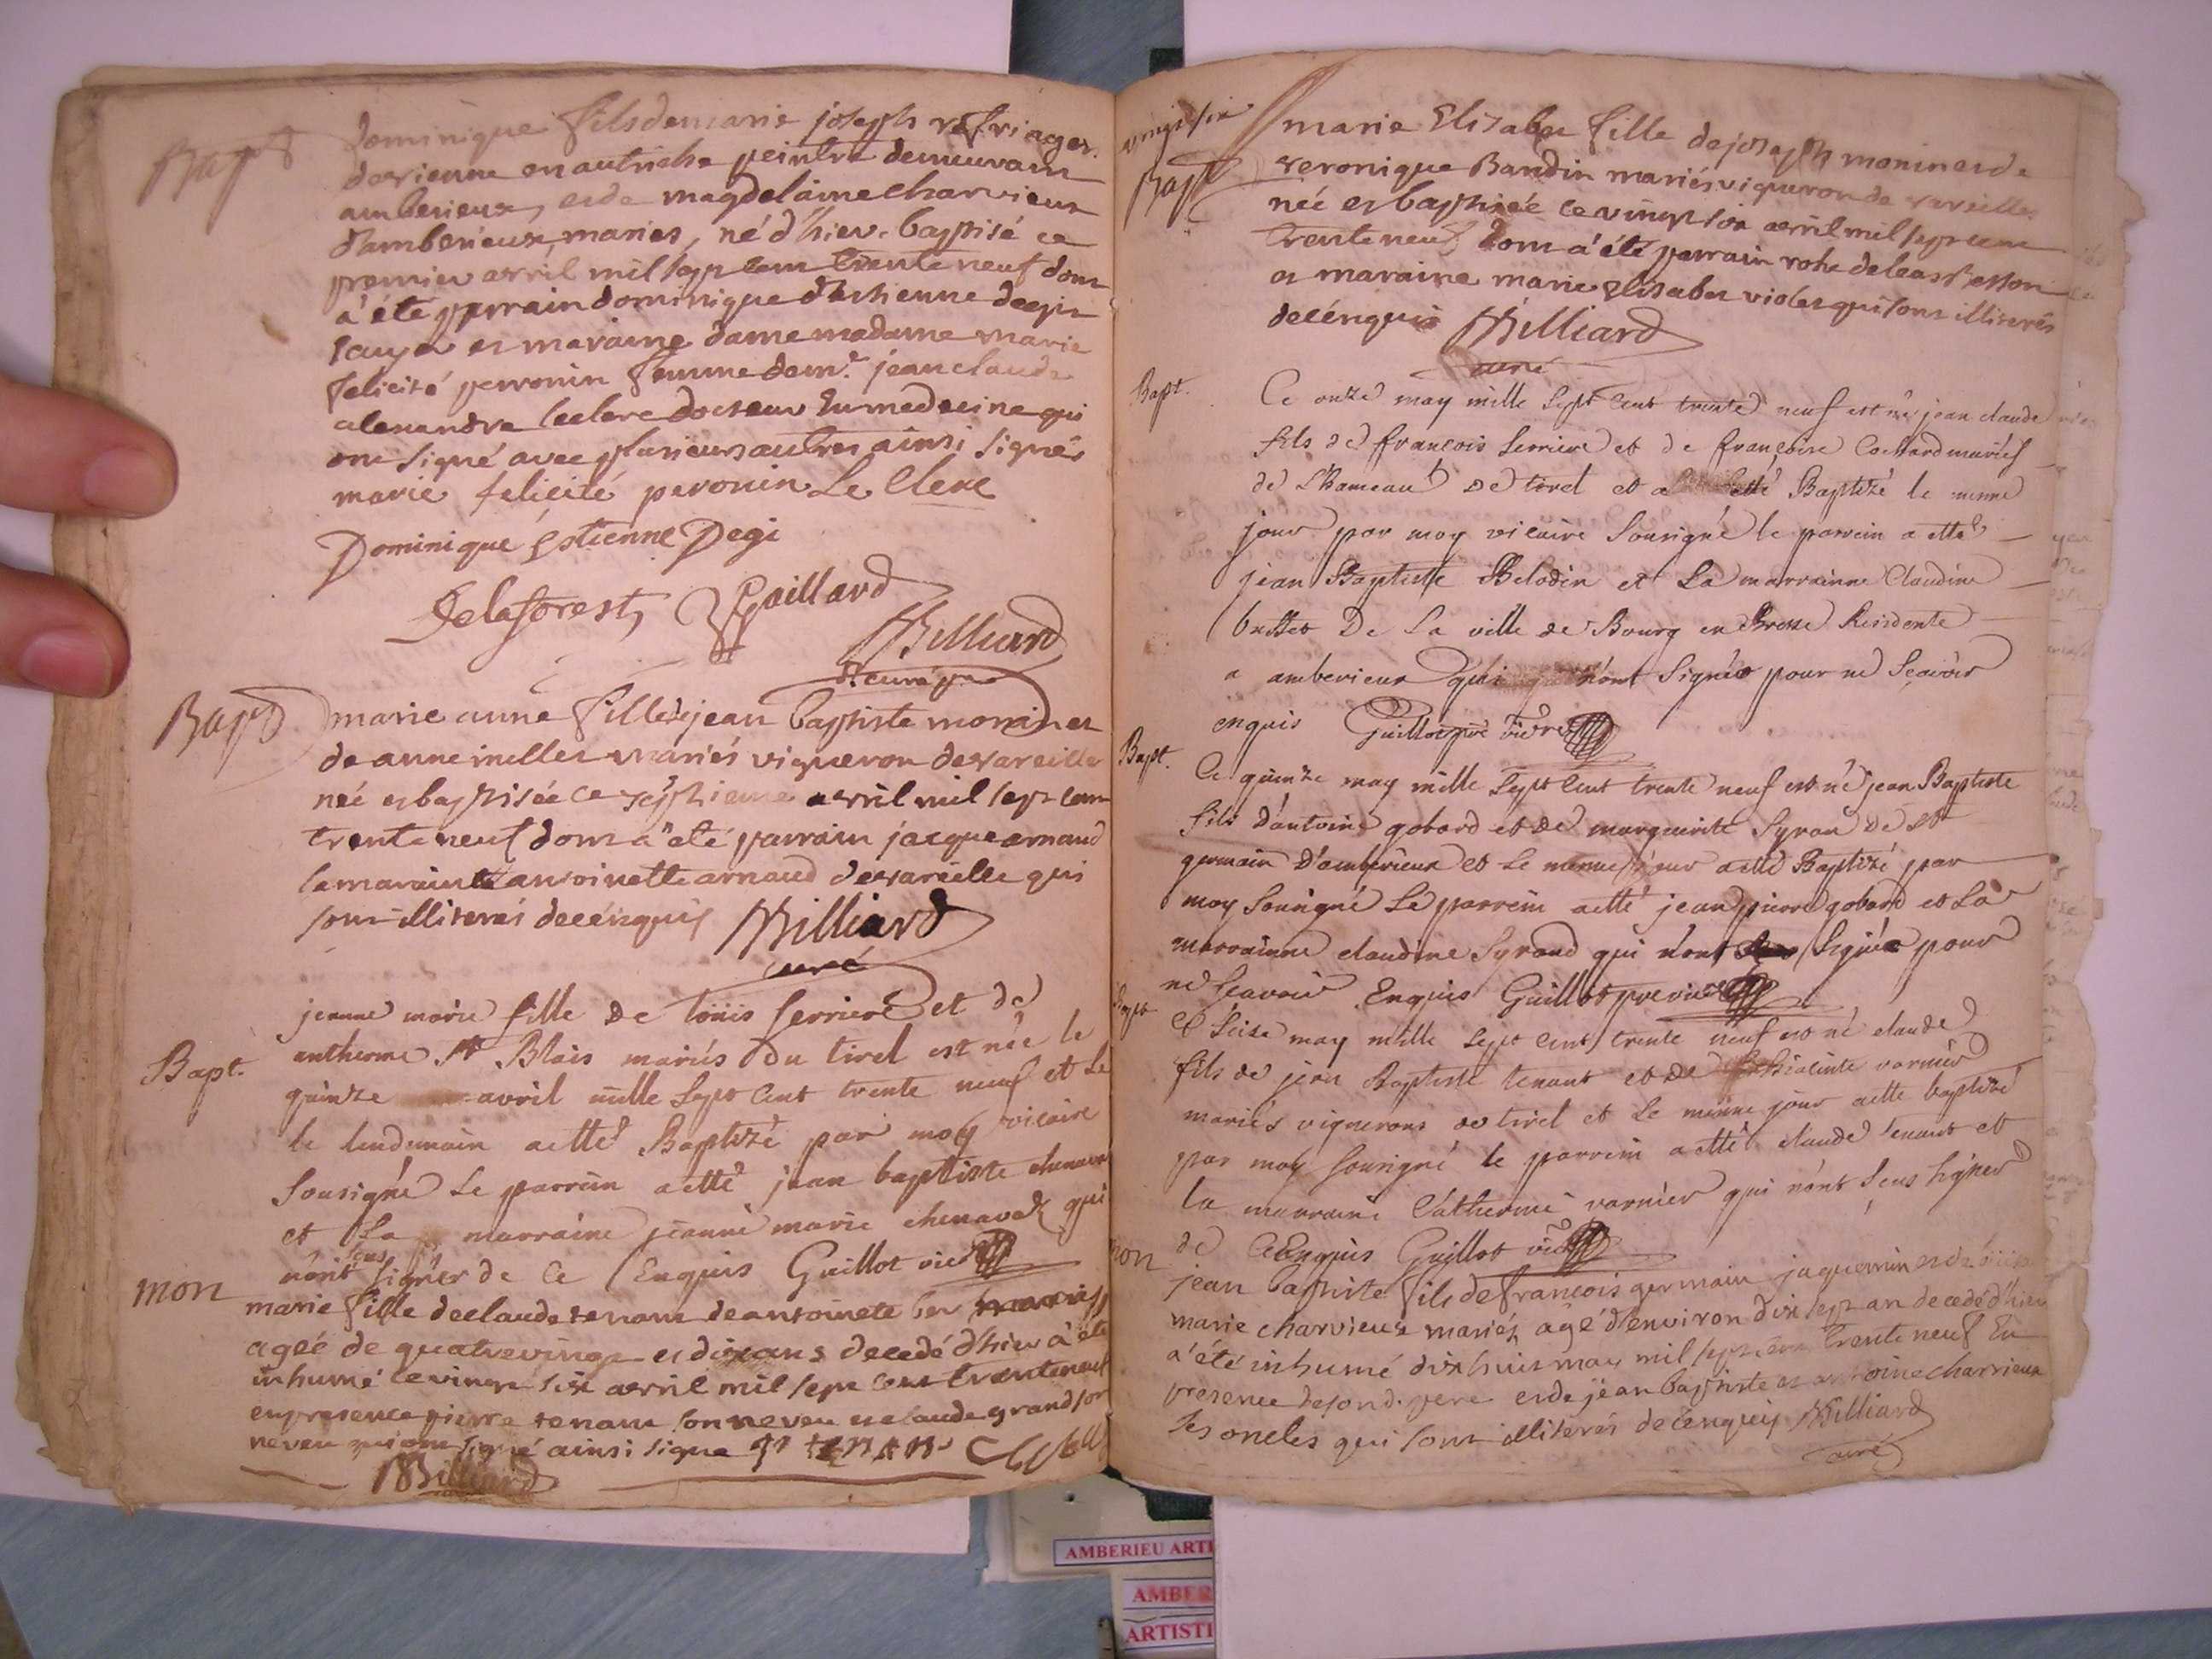 Bapt
dominique fils de marie joseph
de vienne en autriche peintre demeurant
amberieux, et de magdelaine charvieux
d'amberieux, mariés, né d'hier. baptisé ce
premier avril mil sept cent trente neuf dont
a été parrain dominique d'estienne
et maraine dame madame marie
felicité peronin femme de mr. jean claude
alexandre leclerc docteur en medecine qui
ont signé avec plusieurs autres ainsi signés
marie felicité peronin Le Clerc
Dominique Estienne Degi
Delaforest Gaillard
Billiard
curé
Bapt
marie anne fille de jean baptiste monin et
de anne millet mariés vigneron de vareille
née et baptisée ce septieme avril mil sept cent
trente neuf dont a été parrain jacque arnaud
la maraine antoinette arnaud de vareille qui
sont illiterés de ce enquis Billiard
curé
Bapt.
jeanne marie fille De loüis ferriere et de
antherme St Blais mariés Du tiret est née le
quinze avril mille Sept Cent trente neuf et Le
le lendemain a etté Baptizé par moy vicaire
Sousigné Le parrein a etté jean baptiste
et La marraine jeanne marie chenavas qui
n'ont sceus signer de Ce Enquis Guillot vic
mon
marie fille de claude tenant de antoinete mariés
agée de quatre vingt et dix ans decedé d'hier à été
inhumé ce vingt six avril mil sept cent trente neuf
en presence pierre tenant son neveu et claude grand son
neveu qui ont signé ainsi signe
Billiard
vingt six
Bapt
marie Elisabet fille de joseph monin et de
veronique Bandin mariés vigneron de vareille
née et baptisée ce vingt six avril mil sept cent
trente neuf dont a été parrain
et maraine marie elisabet violet qui sont illiterés
de ce enquis Billiard
curé
Bapt.
Ce onze may mille Sept Cent trente neuf est né jean claude
fils de françois ferriere et de françoise Cochard mariés
de L'hameau De tiret et a etté Baptizé le meme
jour par moy vicaire Sousigné le parrein a etté
jean Baptiste Belodin et La marrainne Claudine
De La ville de Bourg en Bresse Residente
a amberieux qui n'ont Signéer pour ne Sçavoir
enquis Guillot pre vicre
Bapt.
Ce quinze may mille Sept Cent trente neuf est né jean Baptiste
fils d'antoine gobard et De marguerite Syran De St
germain D'amberieux et Le meme jour a etté Baptizé par
moy Sousigné Le parrein a etté jean pierre gobard et La
marrainne claudine Syrand qui n'ont Signéer pour
ne Scavoir Enquis Guillot pre vicre
Bapt
Ce Seize may mille Sept Cent trente neuf est né claude
fils de jean Baptiste tenant et De hiacinte varnier
mariés vignerons de tiret et Le meme jour a etté baptizé
par moy Sousigné le parrein a etté claude tenant et
la marraine Catherine varnier qui n'ont Sceus Signer
de Ce Enquis Guillot vic
mon
jean baptiste fils de francois germain jaquemin et de
marie charvieux mariés, agé d'environ dix sept an decedé d'hier
a été inhumé dix huit may mil sept cent trente neuf En
presence de son d. pere et de jean baptiste et antoine charvieux
ses oncles qui sont illiterés de ce enquis Billiard
curé
AMBERIEU ARTI
AMBER
ARTISTI